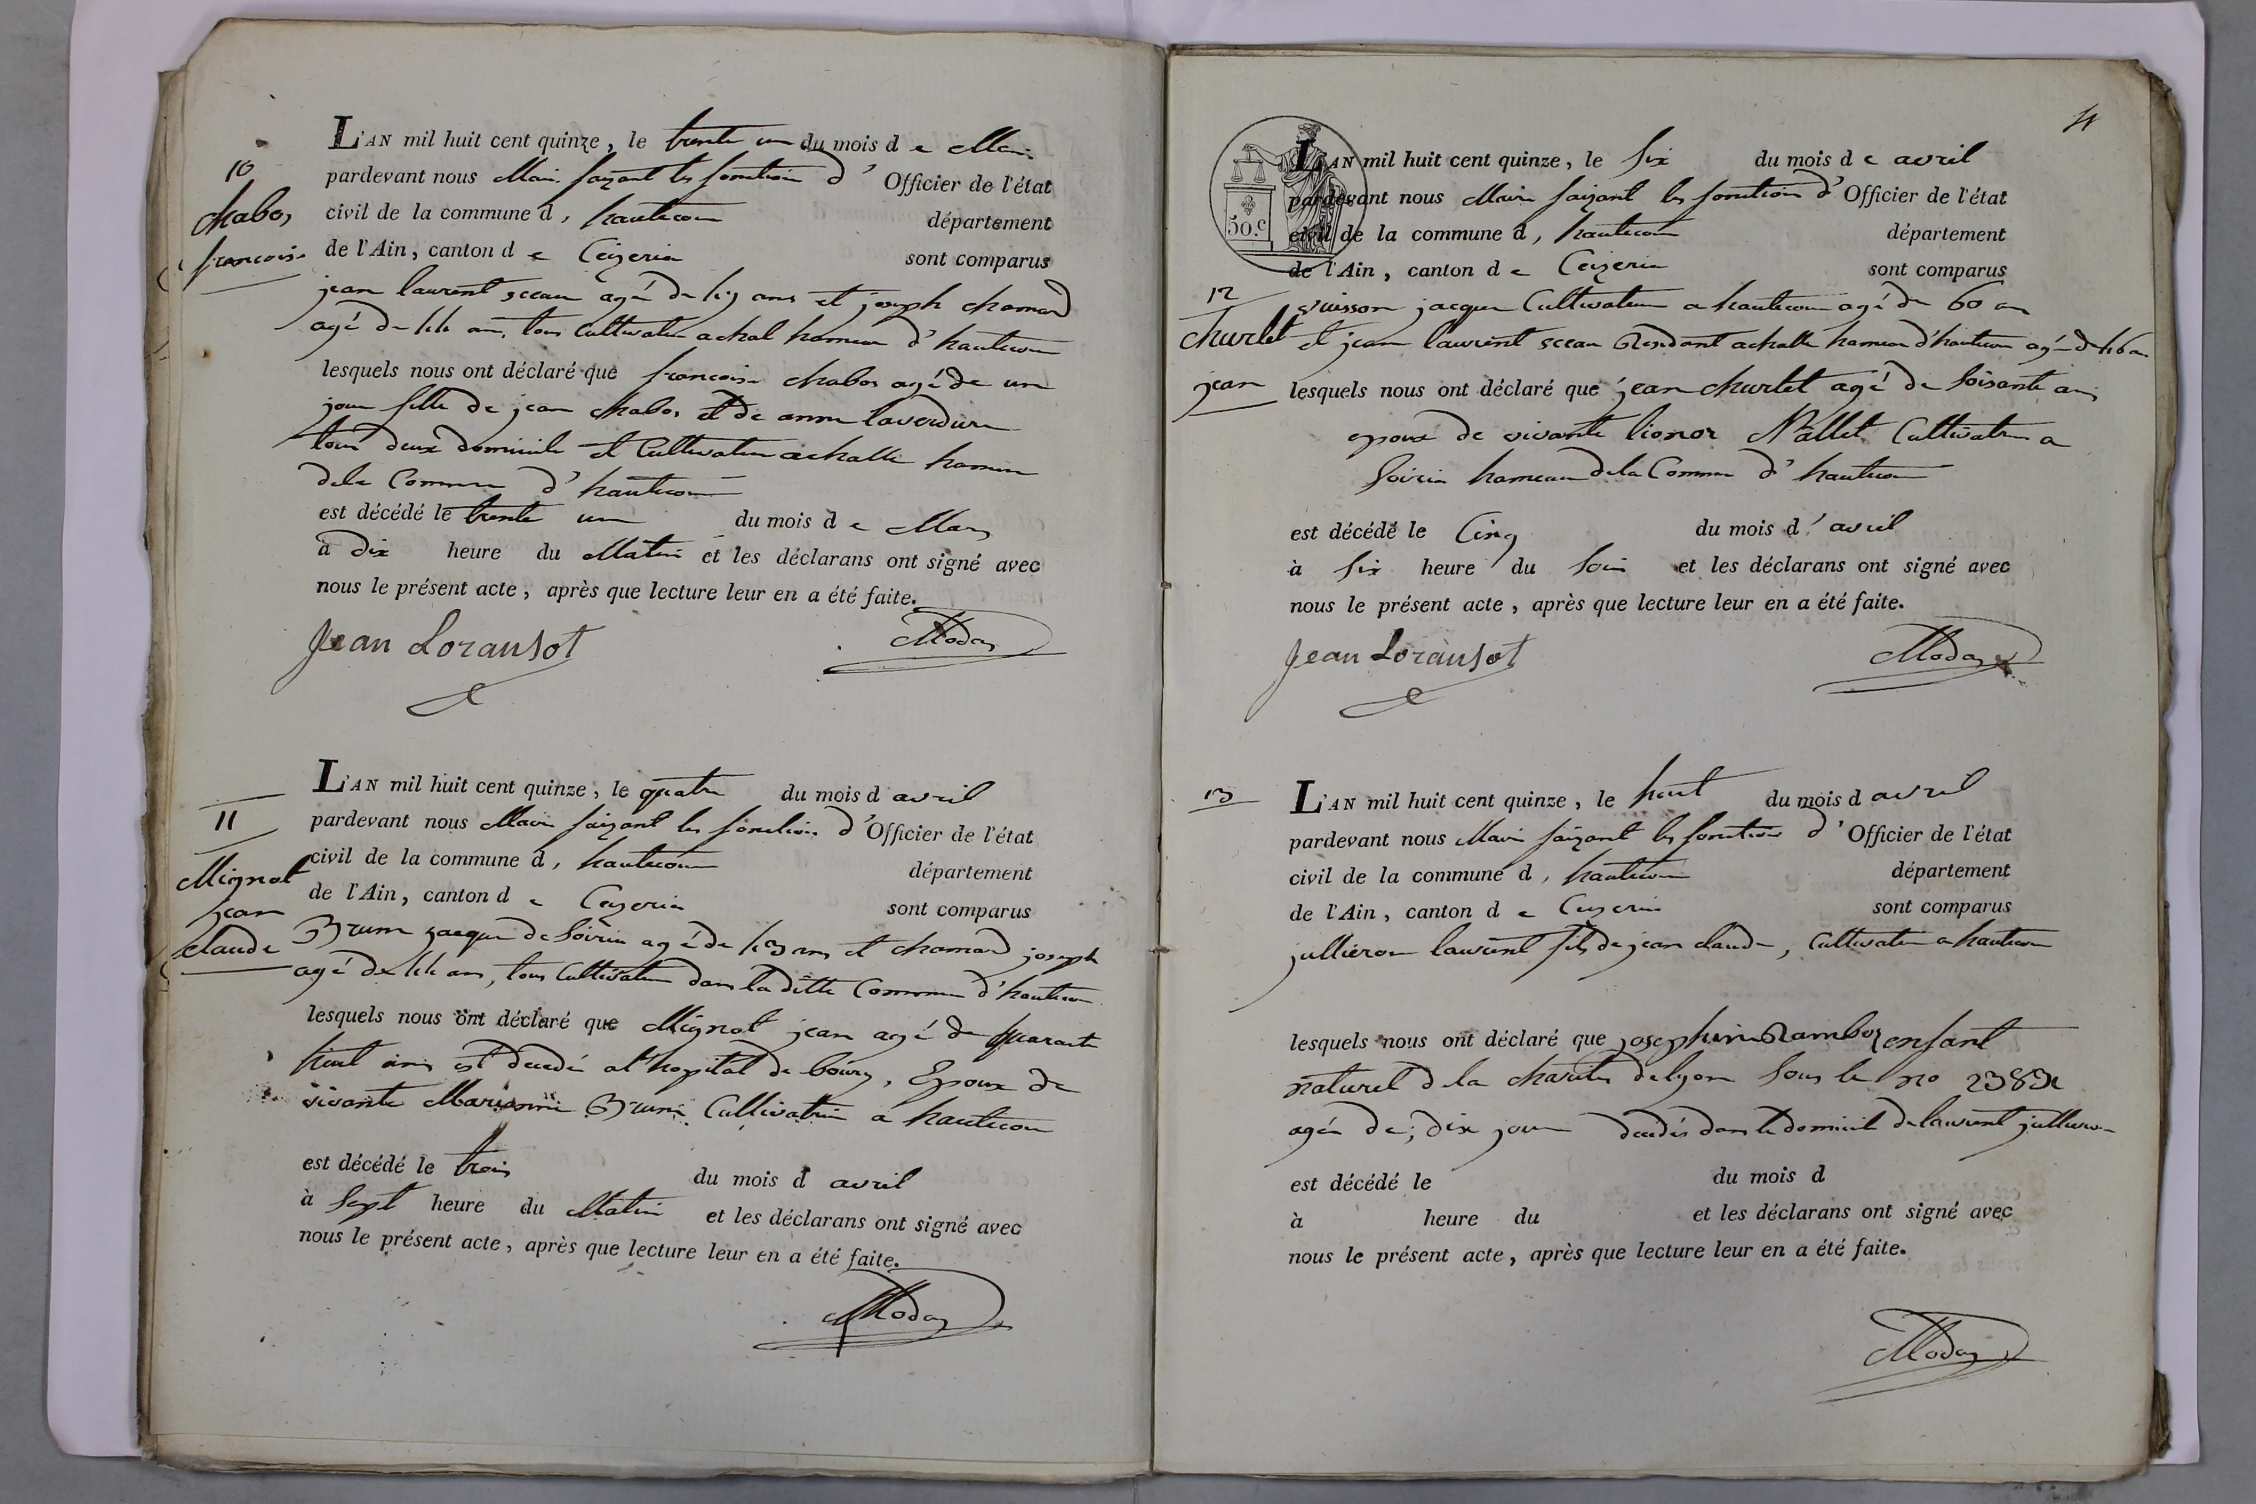 10
chabos
francoise
L'AN mil huit cent quinze, le trente un du mois de Mars
pardevant nous Maire faizant les fonction d' Officier de l'état
civil de la commune d, hautecour département
de l'Ain, canton de Ceizeria sont comparus
jean laurent agé de ans et joseph chamard
agé de 44 ans, tous Cultivateur a chal hameau d'hautecour
lesquels nous ont déclaré que francoise chabos agé de un
jour fille de jean chabos et de anne laverdure
tous deux domicile et Cultivateur a challe hameau
dela Commune d'hautecour
est décédé le trente un du mois de Mars
à dix heure du Matin et les déclarans ont signé avec
nous le présent acte, après que lecture leur en a été faite.
Jean Loransot Moday
11
Mignot
jean
claude
L'AN mil huit cent quinze, le quatre du mois d avril
pardevant nous Maire faizant les fonction d' Officier de l'état
civil de la commune d, hautecour département
de l'Ain, canton de Ceyzeria sont comparus
Brun jacque de Soiria agé de 43 ans et chamard joseph
agé de 44 ans, tous Cultivateur dans la ditte Commune d'hautecour
lesquels nous ont déclaré que Mignot jean agé de quarante
huit ans est decedé a l'hopital de bourg, Epoux de
vivante Marianne Brun Cultivatrice a hautecour
est décédé le trois du mois d avril
à Sept heure du Matin et les déclarans ont signé avec
nous le présent acte, après que lecture leur en a été faite.
Moday
4
50.c
L'AN mil huit cent quinze, le Six du mois de avril
pardevant nous Maire faizant les fonction d' Officier de l'état
civil de la commune d, hautecour département
de l'Ain, canton de Ceizeria sont comparus
12
churlet
jean
vuisson jacque Cultivateur a hautecour agé de 60 an
et jean laurent a challe hameau d'hautecour agé de 46 an
lesquels nous ont déclaré que jean churlet agé de Soisante ans
epoux de vivante lionor Nallet Cultivateur a
Soiria hameau dela Commune d'hautecour
est décédé le Cinq du mois d'avril
à Six heure du Soir et les déclarans ont signé avec
nous le présent acte, après que lecture leur en a été faite.
Jean Loransot Moday
13
L'AN mil huit cent quinze, le huit du mois d avril
pardevant nous Maire faizant les fonction d' Officier de l'état
civil de la commune d, hautecour département
de l'Ain, canton de Ceyzeria sont comparus
julliéron laurent fils de jean claude, Cultivateur a hautecour
lesquels nous ont déclaré que josephine Ramboz enfant
naturel de la charité de lyon Sous le no
agée de; dix jour decedés dans le domicile de laurent jullieron
est décédé le du mois d
à heure du et les déclarans ont signé avec
nous le présent acte, après que lecture leur en a été faite.
Moday